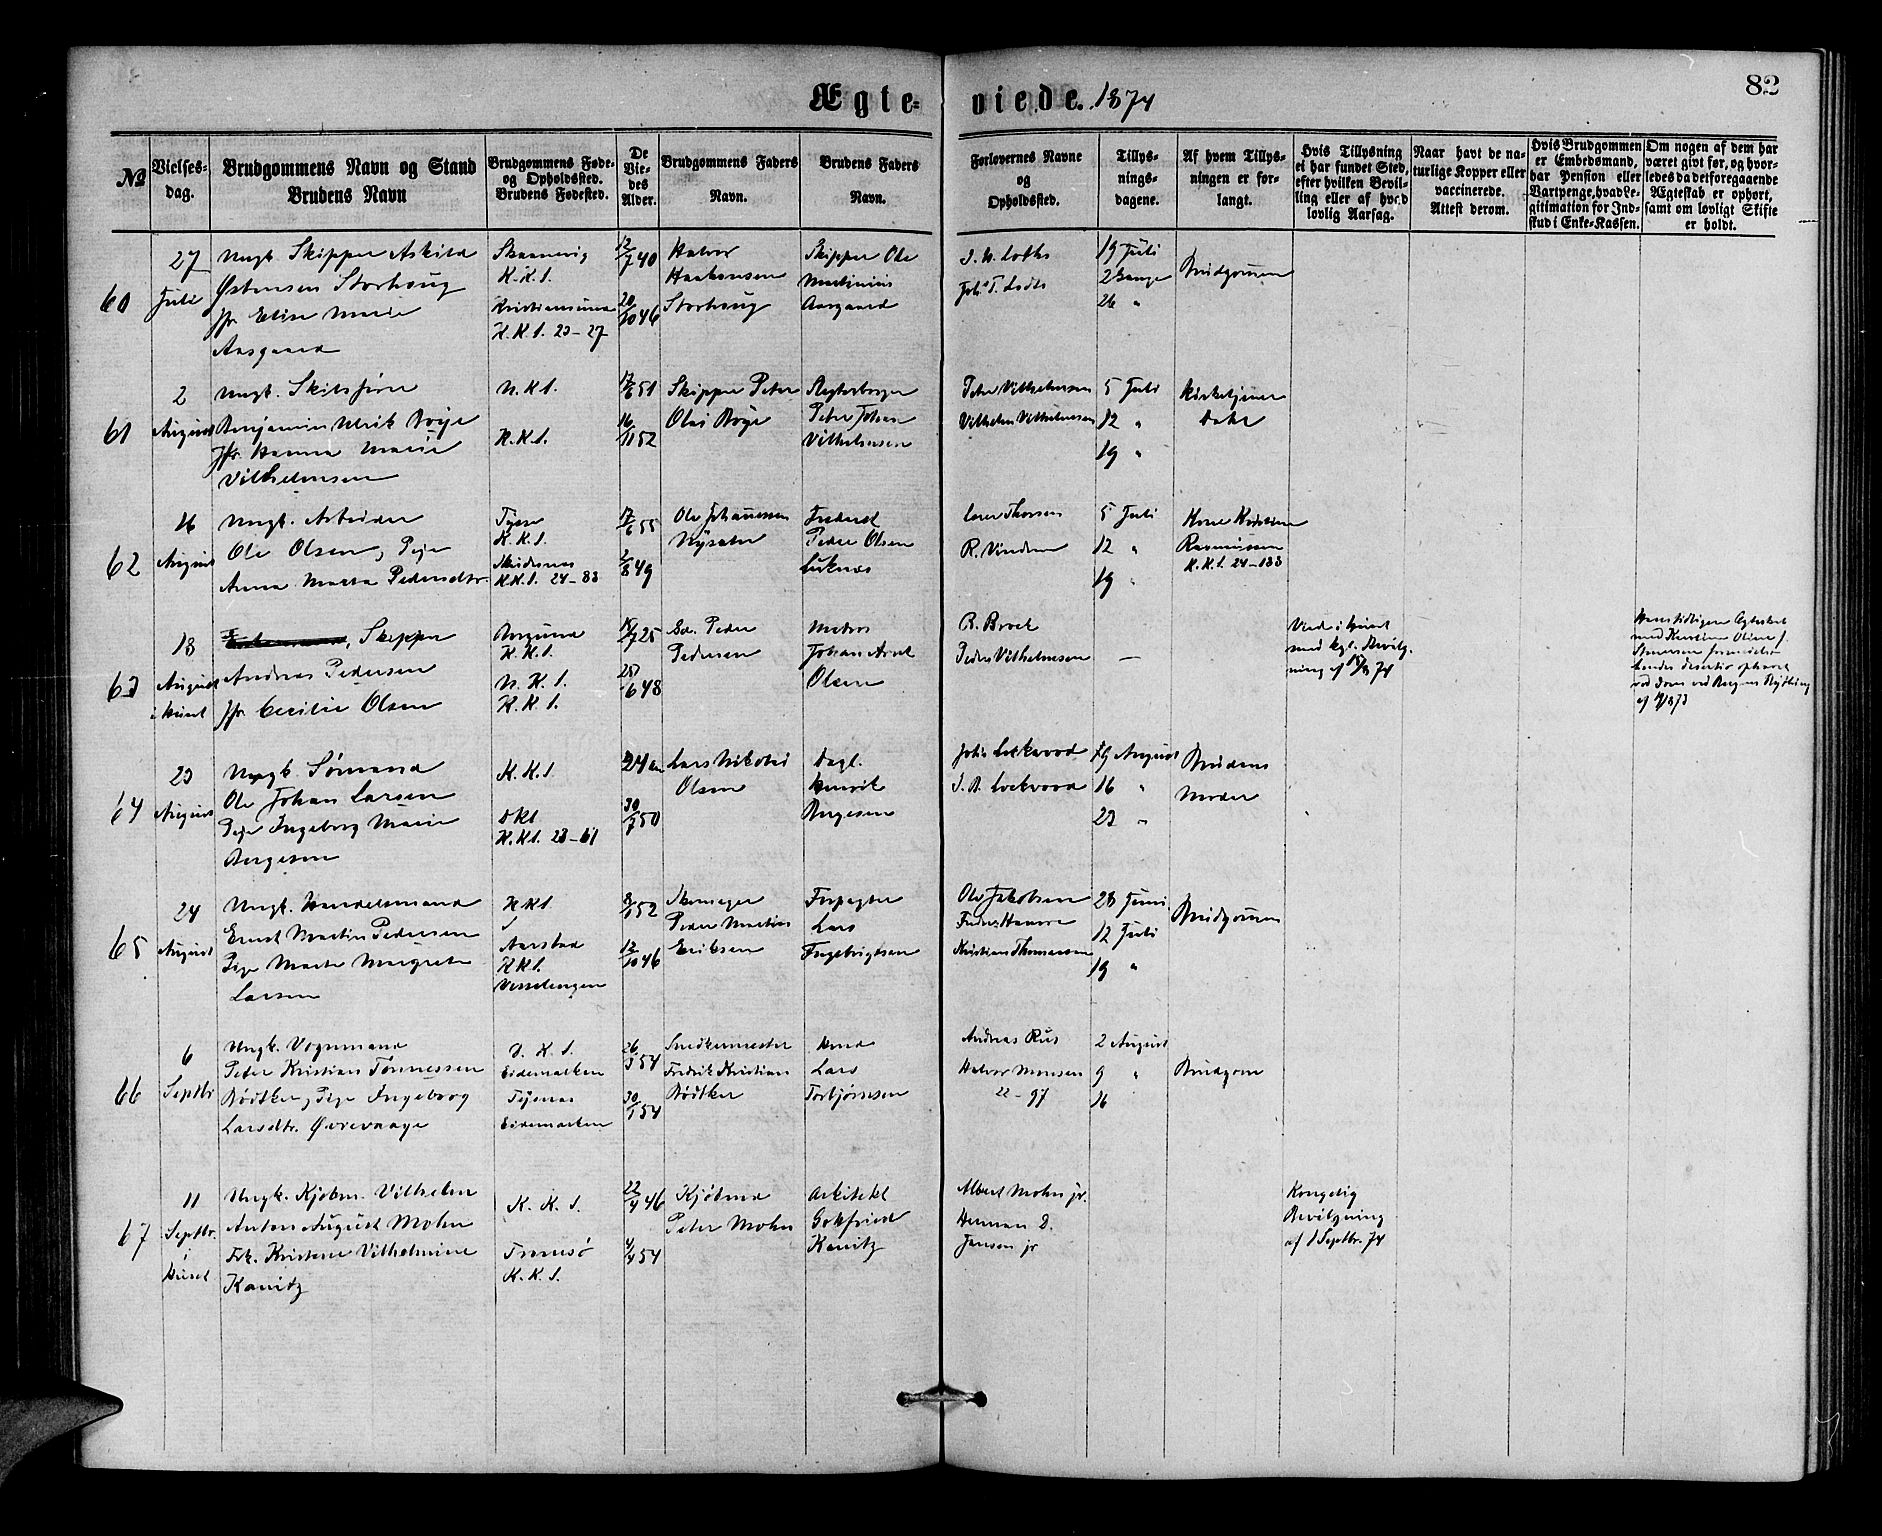 Ægte=
viede. 1874
82
№
Vielses-
dag.
Brudgommens Navn og Stand
Brudens Navn
Brudgommens Føde-
og Opholdssted.
Brudens Fødested.
De
Vie-
des
Alder.
Brudgommens Faders
Navn.
Brudens Faders
Navn.
Forlovernes Navne
og
Opholdssted.
Tillys-
nings-
dagene.
Af hvem Tillys-
ningen er for-
langt.
Hvis Tillysning
ei har fundet Sted,
efter hvilken Bevil-
ling eller af hvad
lovlig Aarsag.
Naar havt de na-
turlige Kopper eller
vaccinerede.
Attest derom.
Hvis Brudgommen
er Embedsmand,
har Pension eller
Vartpenge, hvad Le-
gitimation for Ind-
skud i Enke-Kassen.
Om nogen af dem har
været givt før, og hvor-
ledes da detforegaaende
Ægteskab er ophørt,
samt om lovligt Skifte
er holdt.
60
27
Juli
Ungk. Skipper Askild
Østensen Storhoug
jfr. Elise Marie
Aasgaard
K. K. S.
Kristianssund
K. K. S. 23-27
12/7 40
20/10 46
Halvor
Storhoug
Skipper Ole
Martinius
Aasgaard
19 Juli
2 Gange
26 "
Brudgommen
61
2
August
Ungk.
Benjamin Ulrik Bøje
Jfr. Hanna Marie
Vilhelmsen
N. K. S.
K. K. S.
17/6 51
16/11 52
Skipper Peter
Olai Bøje
Peter Johan
Vilhelmsen
Peter Vilhelmsen
Vilhelm Vilhelmsen
5 Juli
12 "
19 "
Kirketjener
62
16
August
Ungk. Arbeider
Ole Olsen, Pige
Anna Marta Pedersdtr.
K. K. S.
Skudesnes
K. K. S. 24-83
17/6 55
2/8 49
Ole Johannessen
Peder Olsen
5 Juli
12 "
19 "
Kone Kristine
Rasmussen
K. K. S. 24-133
63
18
August
i Huset
, Skipper
Andreas Pedersen
jfr. Cecilie Olsen
K. K. S.
N. K. S.
K. K. S.
Peder
Pedersen
Matros
Johan Arnt
Olsen
B. Broch
Peder Vilhelmsen
—
Viede i Huset
med kgl. Bevilg-
64
23
August
Ungk. Sømand
Ole Johan Larsen
Pige Ingeborg Marie
Børgesen
K. K. S
K. K. S. 23-61
30/7 50
Lars Nikolai
Olsen
Dagl.
Henrik
Børgesen
John Lockwood
J. B. Lockwood
9 August
16 "
23 "
Brudens
Moder
65
24
August
Ungk. Handelsmand
Ernst Martin Pedersen
Pige Marte Margrete
Larsen
K K S.
Aarstad
K K S.
8/1 52
12/10 46
Skomager
Peder Martin
Eriksen
Forpagter
Lars
Ingebrigtsen
Ole Jakobsen
Kristian Thomassen
28 Juni
12 Juli
19 "
Brudgommen
66
6
Septbr
Ungk. Vognmand
Peter Kristian Tønnessen
Bødtker, Pige Ingeborg
Larsdtr. Øvrevaage
D. K. S.
Eidemarken
Tysnes
Eidemarken
26/3 54
30/1 54
Snedkermester
Fredrik Kristian
Bødtker
Lars
Torbjørnsen
Andreas Rus
Halvor Monsen
22-97
2 August
9 "
16
Brudgom
67
11
Septbr.
i
Huset
Ungk. Kjøbm. Vilhelm
Anton August Mohn
Frk. Kristine Vilhelmine
Kanitz
K. K. S.
Tromsø
K. K. S.
22/4 46
4/4 54
Kjøbmd
Peter Mohn
Arkitekt
Gotfried
Kanitz
Albert Mohn jr.
Herman D.
Janson jr
Kongelig
Bevilgning
af 1 Septbr. 74